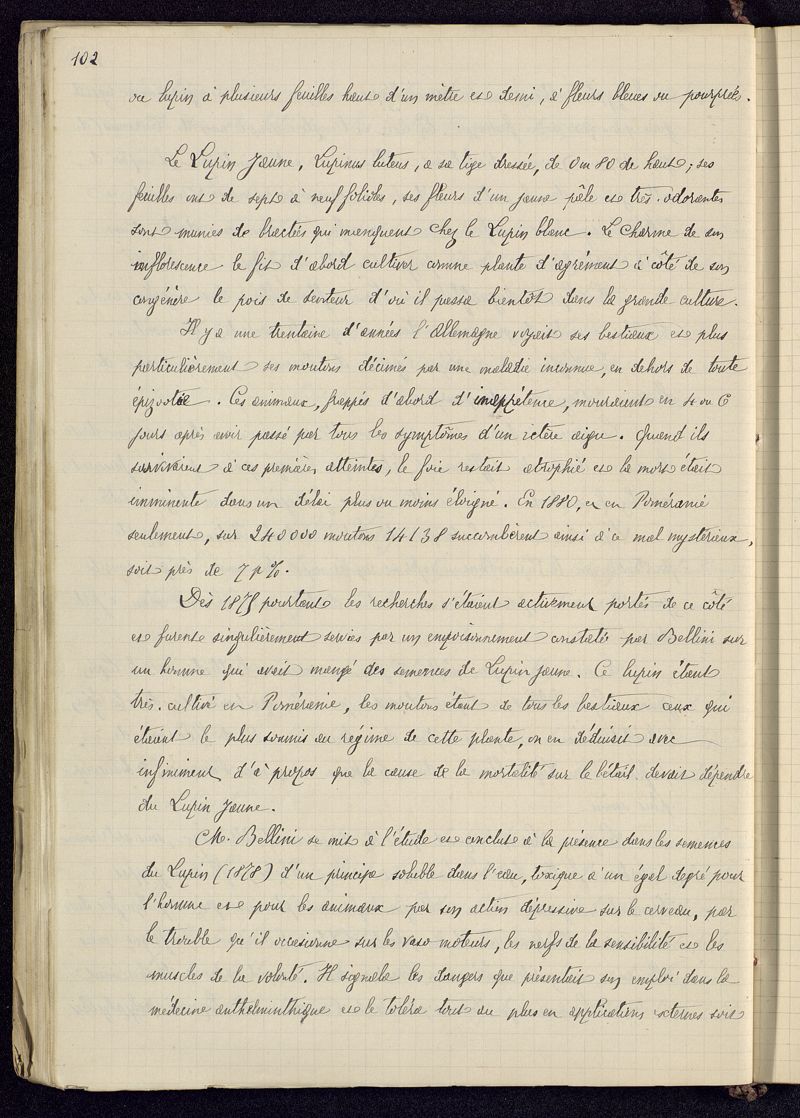 102
ou lupin à plusieurs feuilles haut d'un mètre et demi, à fleurs bleues ou pourprées.
Le Lupin Jaune, Lupinus luteus, a sa tige dressée, de 0m80 de haut; ses
feuilles ont de sept à neuf folioles, ses fleurs d'un jaune pâle et très odorantes
sont munies de bractées qui manquent chez le Lupin blanc. Le charme de son
inflorescence le fit d'abord cultiver comme plante d'agrément à côté de son
congénère le pois de senteur d'où il passa bientôt dans la grande culture.
Il y a une trentaine d'années l'Allemagne voyait ses bestiaux et plus
particulièrement ses moutons décimés par une maladie inconnue, en dehors de toute
épizootie. Ces animaux, frappés d'abord d'inappétence, mouraient en 4 ou 6
jours après avoir passé par tous les symptômes d'un ictère aigu. Quand ils
survivaient à ces premières atteintes, le foie restait atrophié et la mort était
imminente dans un délai plus ou moins éloigné. En 1880, et en Poméranie
seulement, sur 240000 moutons 14138 succombèrent ainsi à ce mal mystérieux,
soit près de 7 p %.
Dès 1875 pourtant les recherches s'étaient activement portées de ce côté
et furent singulièrement servies par un empoisonnement constaté par Bellini sur
un homme qui avait mangé des semences de Lupin jaune. Ce lupin étant
très cultivé en Poméranie, les moutons étant de tous les bestiaux ceux qui
étaient le plus soumis au régime de cette plante, on en déduisit avec
infiniment d'à propos que la cause de la mortalité sur le bétail devait dépendre
du Lupin Jaune.
M. Bellini se mit à l'étude et conclut à la présence dans les semences
du Lupin (1878) d'un principe soluble dans l'eau, toxique à un égal degré pour
l'homme et pour les animaux par son action dépressive sur le cerveau, par
le trouble qu'il occasionne sur les vaso moteurs, les nerfs de la sensibilité et les
muscles de la volonté. Il signala les dangers que présentait son emploi dans la
médecine anthelminthique et le toléra tout au plus en applications externes soit